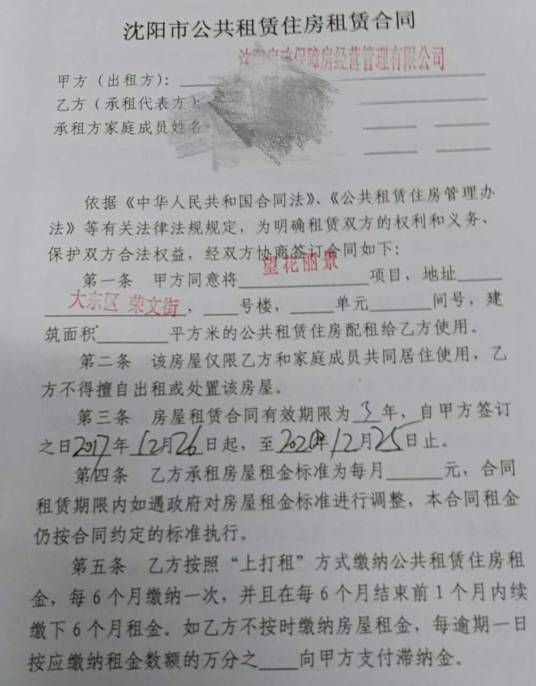 沈阳市公共租赁住房租赁合同
保障房经营管理有限公司
甲方（出租方）：
乙方（承租代表方）
承租方家庭成员姓名
依据《中华人民共和国合同法》、《公共租赁住房管理办
法》等有关法律法规规定，为明确租赁双方的权利和义务、
保护双方合法权益，经双方协商签订合同如下：
望花丽景
第一条 甲方同意将______项目，地址____
大东区 荣文街，____号楼，____单元____间号，建
筑面积____平方米的公共租赁住房配租给乙方使用。
第二条 该房屋仅限乙方和家庭成员共同居住使用，乙
方不得擅自出租或处置该房屋。
第三条 房屋租赁合同有效期限为3年，自甲方签订
之日2017年12月26日起，至2020年12月25日止。
第四条 乙方承租房屋租金标准为每月____元，合同
租赁期限内如遇政府对房屋租金标准进行调整，本合同租金
仍按合同约定的标准执行。
第五条 乙方按照“上打租”方式缴纳公共租赁住房租
金，每6个月缴纳一次，并且在每6个月结束前1个月内续
缴下6个月租金。如乙方不按时缴纳房屋租金，每逾期一日
按应缴纳租金数额的万分之____向甲方支付滞纳金。